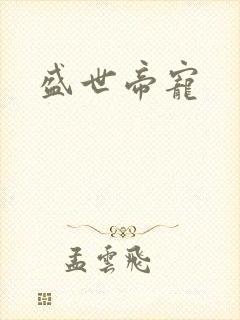 盛世帝寵
孟雲飛